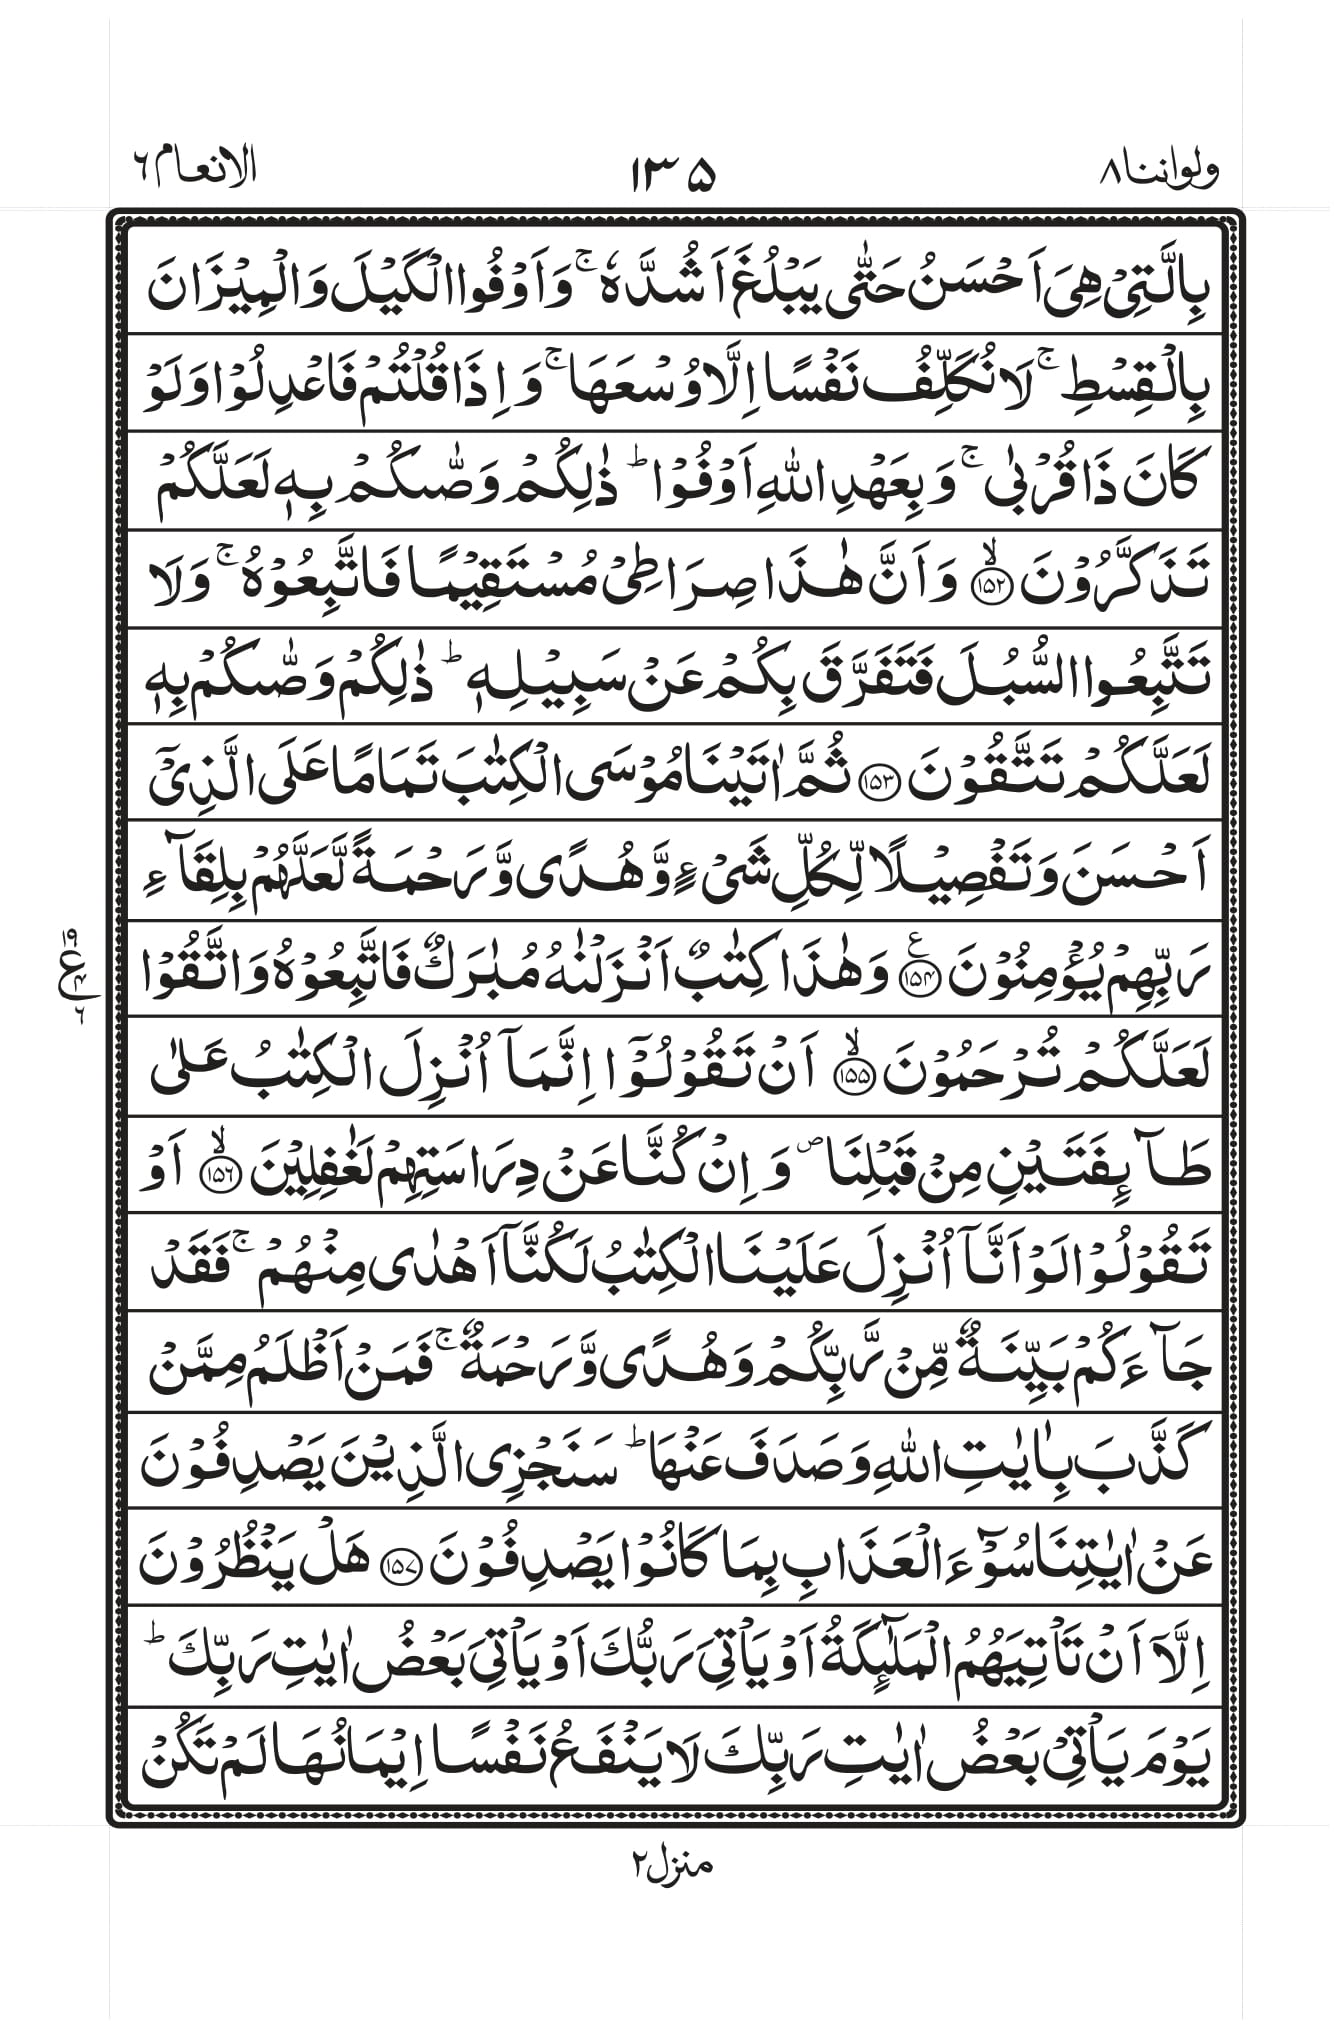 ولواننا ٨ ١٣٥ الانعام ٦
بِالَّتِیْ هِیَ اَحْسَنُ حَتّٰی یَبْلُغَ اَشُدَّهٗ ۚ وَاَوْفُوا الْكَیْلَ وَالْمِیْزَانَ
بِالْقِسْطِ ۚ لَا نُكَلِّفُ نَفْسًا اِلَّا وُسْعَهَا ۚ وَ اِذَا قُلْتُمْ فَاعْدِلُوْا وَلَوْ
كَانَ ذَا قُرْبٰی ۚ وَ بِعَهْدِ اللّٰهِ اَوْفُوْا ؕ ذٰلِكُمْ وَصّٰىكُمْ بِهٖ لَعَلَّكُمْ
تَذَكَّرُوْنَ ۙ﴿۱۵۲﴾ وَ اَنَّ هٰذَا صِرَاطِیْ مُسْتَقِیْمًا فَاتَّبِعُوْهُ ۚ وَلَا
تَتَّبِعُوا السُّبُلَ فَتَفَرَّقَ بِكُمْ عَنْ سَبِیْلِهٖ ؕ ذٰلِكُمْ وَصّٰىكُمْ بِهٖ
لَعَلَّكُمْ تَتَّقُوْنَ ﴿۱۵۳﴾ ثُمَّ اٰتَیْنَا مُوْسَی الْكِتٰبَ تَمَامًا عَلَی الَّذِیْۤ
اَحْسَنَ وَتَفْصِیْلًا لِّكُلِّ شَیْءٍ وَّ هُدًی وَّ رَحْمَةً لَّعَلَّهُمْ بِلِقَآءِ
رَبِّهِمْ یُؤْمِنُوْنَ ﴿۱۵۴﴾ ع وَ هٰذَا كِتٰبٌ اَنْزَلْنٰهُ مُبٰرَكٌ فَاتَّبِعُوْهُ وَ اتَّقُوْا
۱۹ ع ۴ ۶
لَعَلَّكُمْ تُرْحَمُوْنَ ۙ﴿۱۵۵﴾ اَنْ تَقُوْلُوْۤا اِنَّمَاۤ اُنْزِلَ الْكِتٰبُ عَلٰی
طَآىِٕفَتَیْنِ مِنْ قَبْلِنَا ۪ وَ اِنْ كُنَّا عَنْ دِرَاسَتِهِمْ لَغٰفِلِیْنَ ۙ﴿۱۵۶﴾ اَوْ
تَقُوْلُوْا لَوْ اَنَّاۤ اُنْزِلَ عَلَیْنَا الْكِتٰبُ لَكُنَّاۤ اَهْدٰی مِنْهُمْ ۚ فَقَدْ
جَآءَكُمْ بَیِّنَةٌ مِّنْ رَّبِّكُمْ وَ هُدًی وَّ رَحْمَةٌ ۚ فَمَنْ اَظْلَمُ مِمَّنْ
كَذَّبَ بِاٰیٰتِ اللّٰهِ وَ صَدَفَ عَنْهَا ؕ سَنَجْزِی الَّذِیْنَ یَصْدِفُوْنَ
عَنْ اٰیٰتِنَا سُوْٓءَ الْعَذَابِ بِمَا كَانُوْا یَصْدِفُوْنَ ﴿۱۵۷﴾ هَلْ یَنْظُرُوْنَ
اِلَّاۤ اَنْ تَاْتِیَهُمُ الْمَلٰٓىِٕكَةُ اَوْ یَاْتِیَ رَبُّكَ اَوْ یَاْتِیَ بَعْضُ اٰیٰتِ رَبِّكَ ؕ
یَوْمَ یَاْتِیْ بَعْضُ اٰیٰتِ رَبِّكَ لَا یَنْفَعُ نَفْسًا اِیْمَانُهَا لَمْ تَكُنْ
منزل ٢